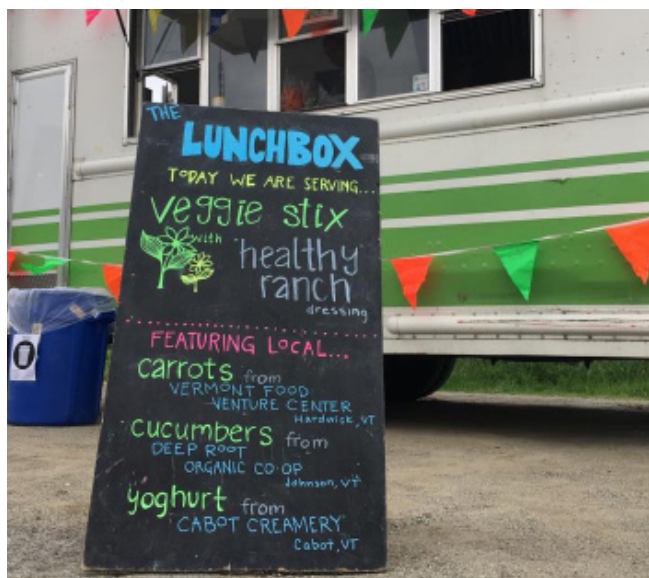 THE
LUNCHBOX
TODAY WE ARE SERVING...
veggie stix
with healthy
ranch
dressing
FEATURING LOCAL...
carrots from
VERMONT FOOD
VENTURE CENTER
Hardwick, VT
cucumbers from
DEEP ROOT
ORGANIC CO-OP
Johnson, VT
yoghurt from
CABOT CREAMERY
Cabot, VT